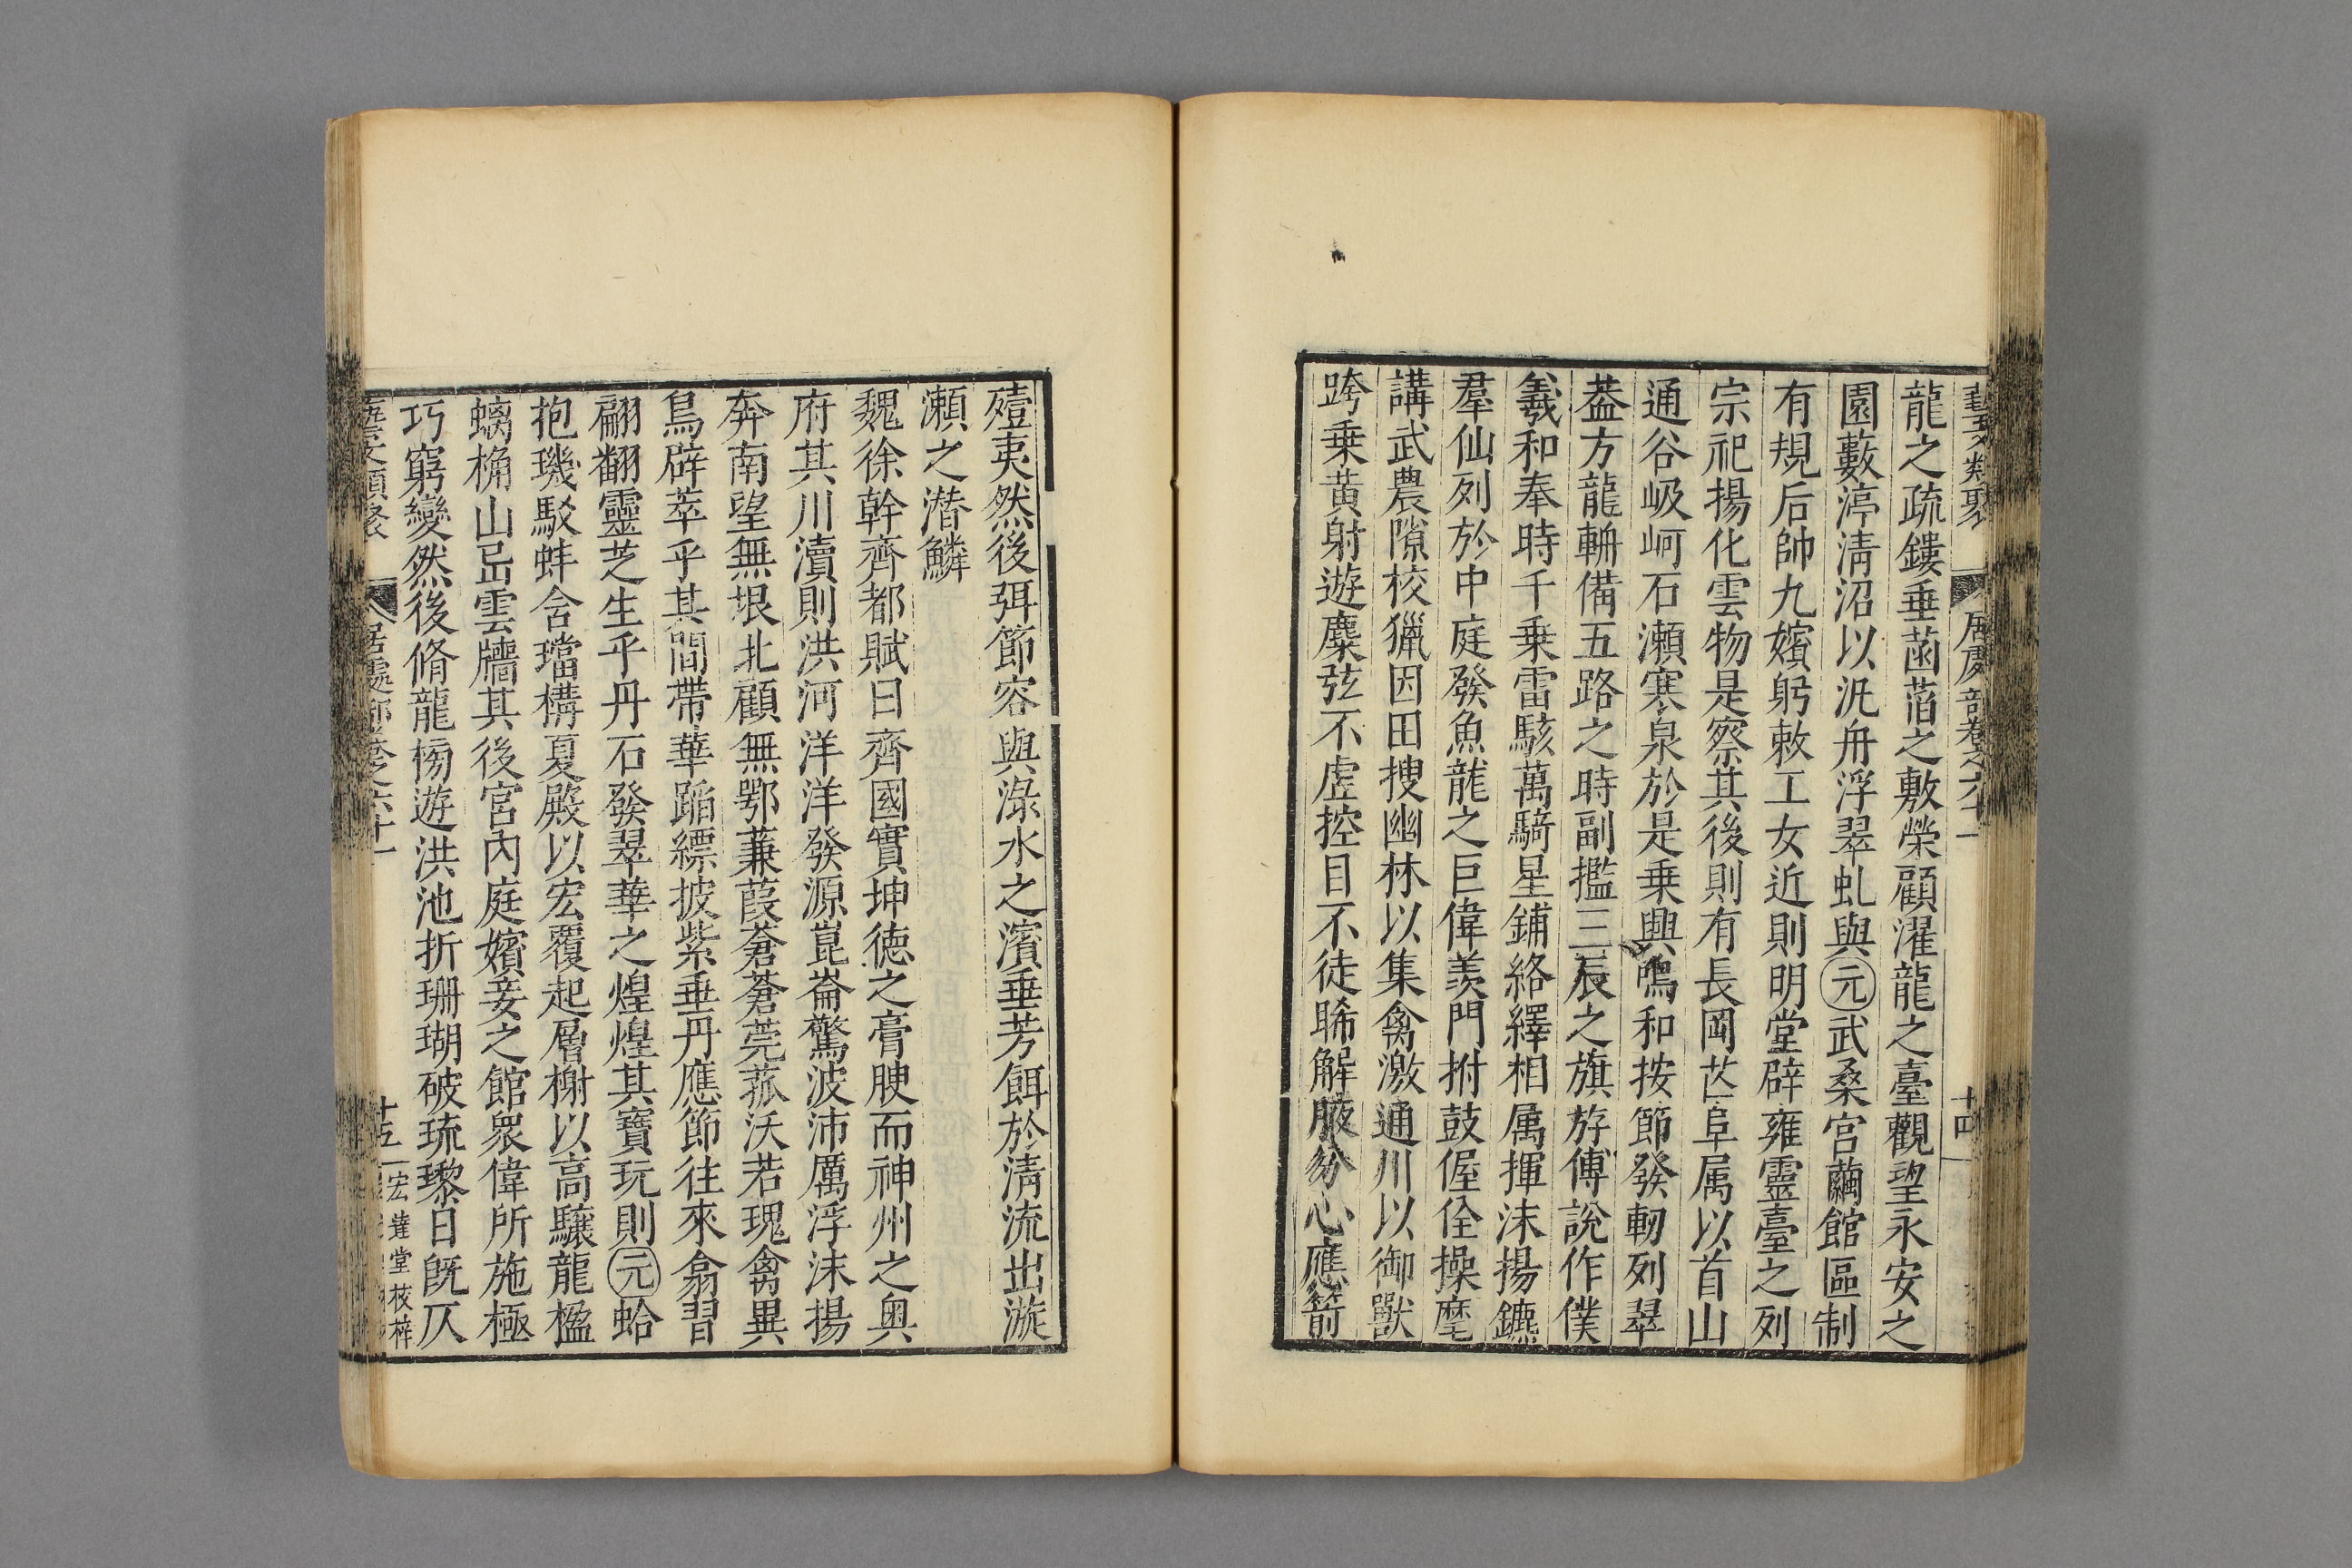 藝文類聚 居處部卷之六十一 十四
龍之疏鏤垂菡萏之敷榮顧濯龍之臺觀望永安之
園藪渟清沼以汎舟浮翠虬與元武桑宮繭館區制
有規后帥九嬪躬敕工女近則明堂辟雍靈臺之列
宗祀揚化雲物是察其後則有長岡芒阜属以首山
通谷岋岢石瀬寒泉於是乗輿鳴和按節發軔列翠
葢方龍輈備五路之時副㩜三辰之旗斿傅說作僕
羲和奉時千乗雷駭萬騎星鋪絡繹相属揮沫揚鑣
羣仙列於中庭發魚龍之巨偉羨門拊鼓偓佺操麾
講武農隙校獵因田搜幽林以集禽激通川以御獸
跨乗黄射遊麋弦不虚控目不徒睎解腋分心應箭
殪夷然後弭節容與淥水之濱垂芳餌於清流出漩
瀬之濳鱗
魏徐幹齊都賦曰齊國實坤徳之膏腴而神州之奥
府其川瀆則洪河洋洋發源崑崙驚波沛厲浮沫揚
奔南望無垠北顧無鄂蒹葭蒼蒼莞菰沃若瑰禽異
鳥辟萃乎其間帶華蹈縹披紫垂丹應節往來翕習
翩翻靈芝生乎丹石發翠華之煌煌其寶玩則元蛤
抱璣駁蚌含璫構夏殿以宏覆起層榭以高驤龍楹
螭桷山岊雲牆其後宮內庭嬪妾之館衆偉所施極
巧窮變然後脩龍榜遊洪池折珊瑚破琉瓈日旣仄
藝文類聚 居處部卷之六十一 十五 宏達堂校梓